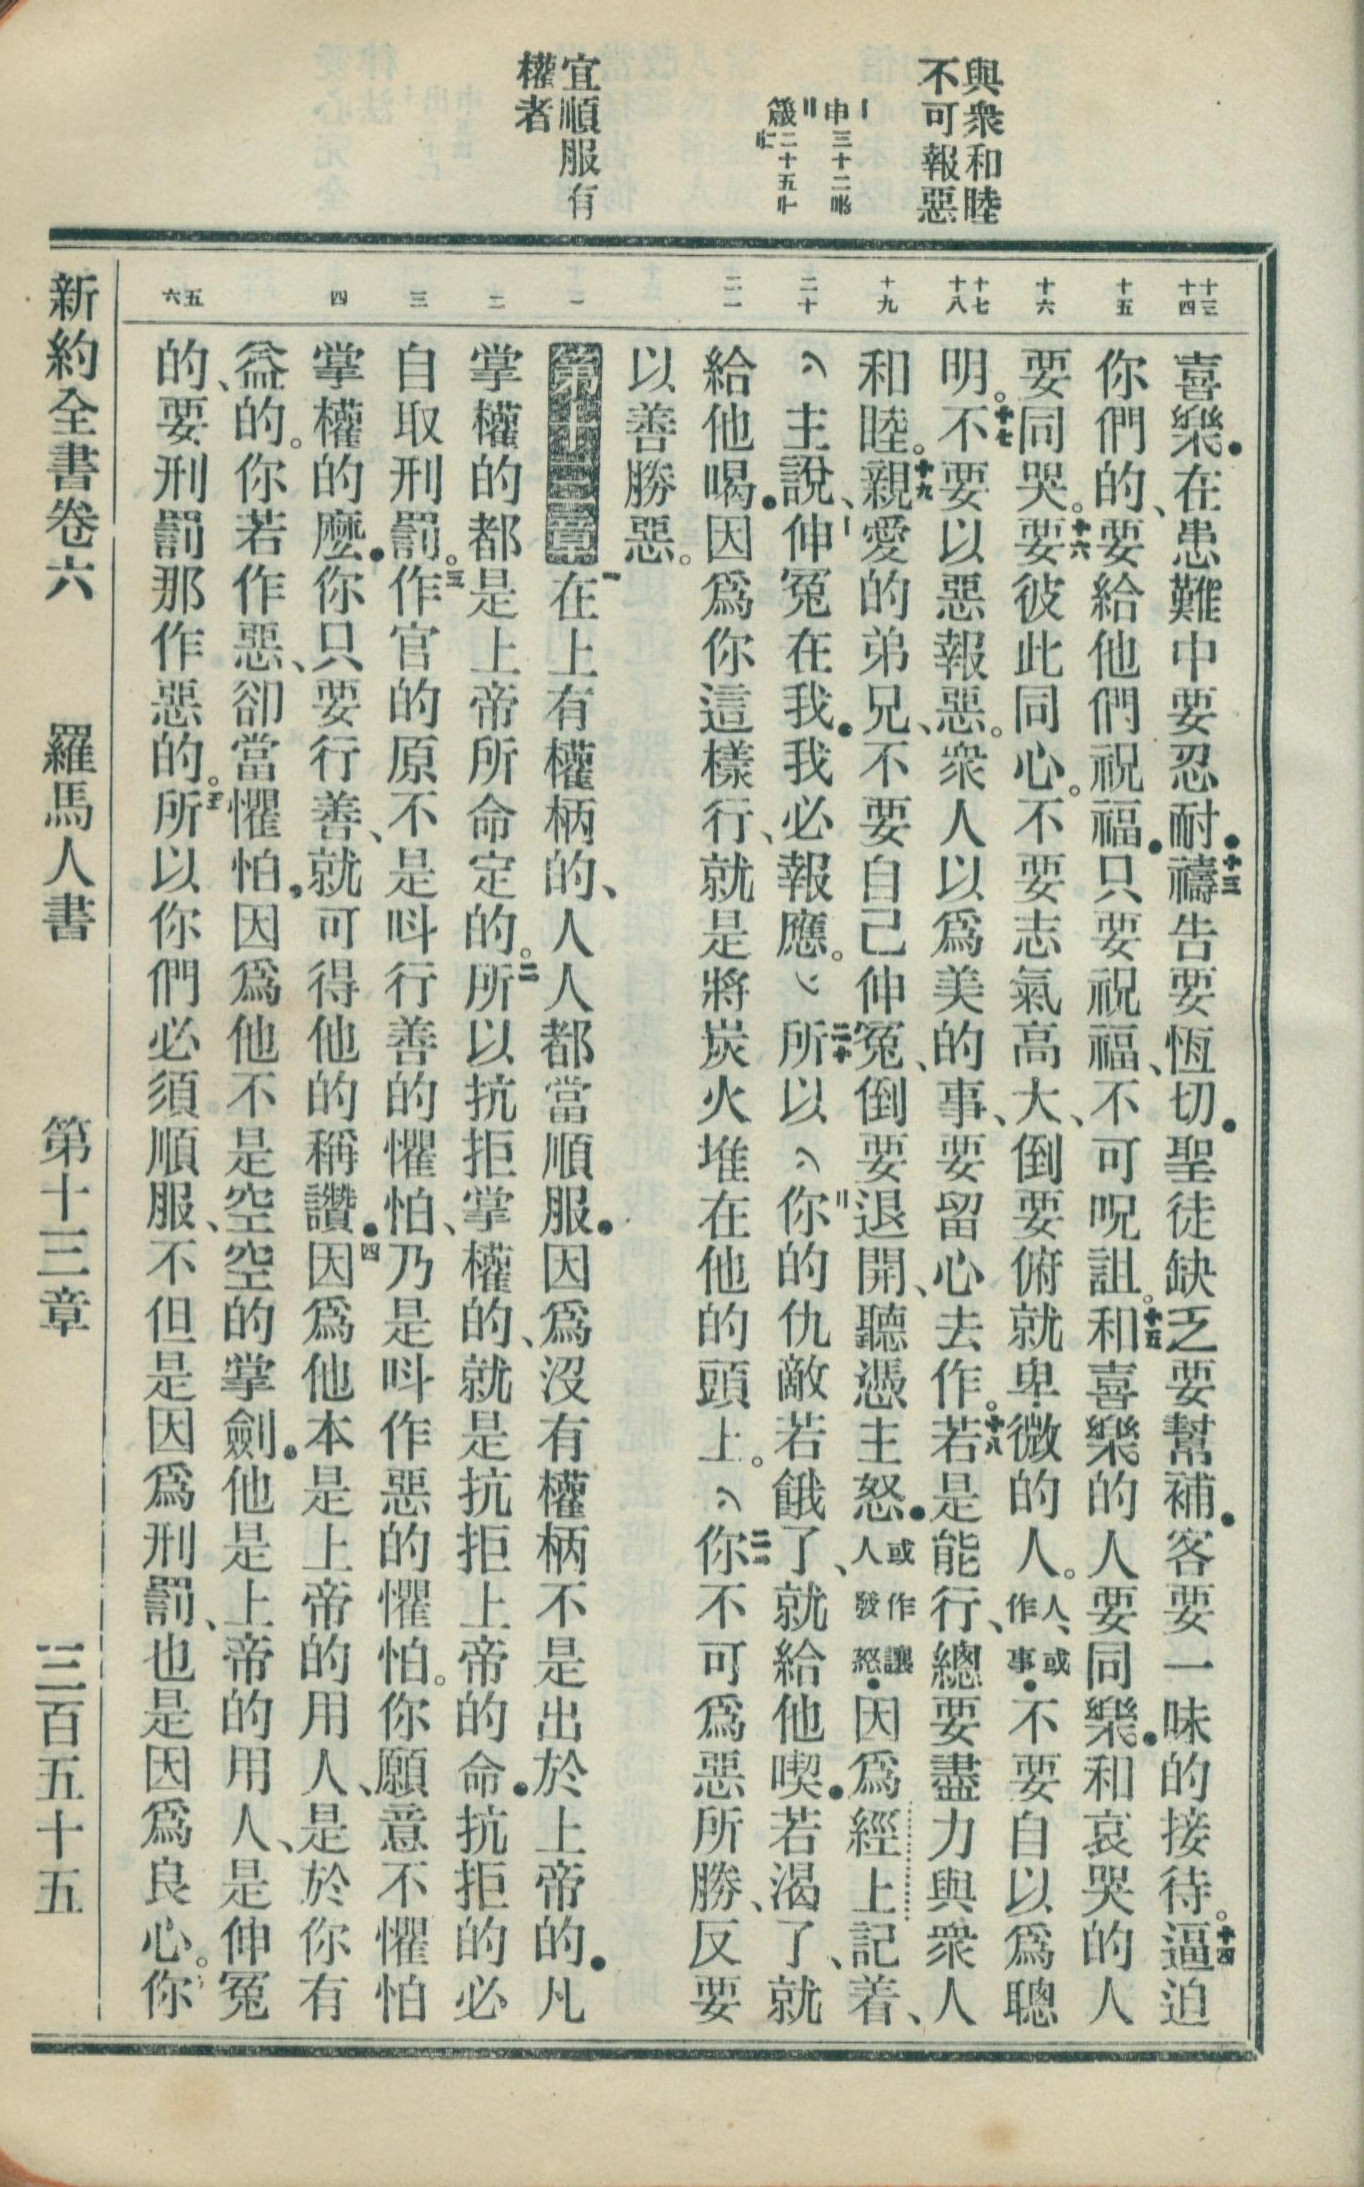 與衆和睦
不可報惡
申三十二
箴二十五
宜順服有
權者
十三
十四
十五
十六
十七
十八
十九
二十
二一
一
二
三
四
五
六
喜樂．在患難中要忍耐．十三禱告要恆切．聖徒缺乏要幫補．客要一味的接待。十四逼迫
你們的、要給他們祝福．只要祝福、不可呪詛。十五和喜樂的人要同樂．和哀哭的人
要同哭。十六要彼此同心。不要志氣高大、倒要俯就卑微的人。人、或作事．不要自以爲聰
明。十七不要以惡報惡。衆人以爲美的事、要留心去作。十八若是能行、總要盡力與衆人
和睦。十九親愛的弟兄、不要自己伸冤、倒要退開、聽憑主怒．或作讓人發怒．因爲經上記着、
主說、伸冤在我．我必報應。二十所以你的仇敵若餓了、就給他喫．若渴了、就
給他喝．因爲你這樣行、就是將炭火堆在他的頭上。二一你不可爲惡所勝、反要
以善勝惡。
第十三章一在上有權柄的、人人都當順服．因爲沒有權柄不是出於上帝的．凡
掌權的都是上帝所命定的。二所以抗拒掌權的、就是抗拒上帝的命．抗拒的必
自取刑罰。三作官的原不是呌行善的懼怕、乃是呌作惡的懼怕。你願意不懼怕
掌權的麼．你只要行善、就可得他的稱讚．四因爲他本是上帝的用人、是於你有
益的。你若作惡、卻當懼怕．因爲他不是空空的掌劍．他是上帝的用人、是伸冤
的、要刑罰那作惡的。五所以你們必須順服、不但是因爲刑罰、也是因爲良心。你
新約全書卷六　羅馬人書　第十三章　三百五十五